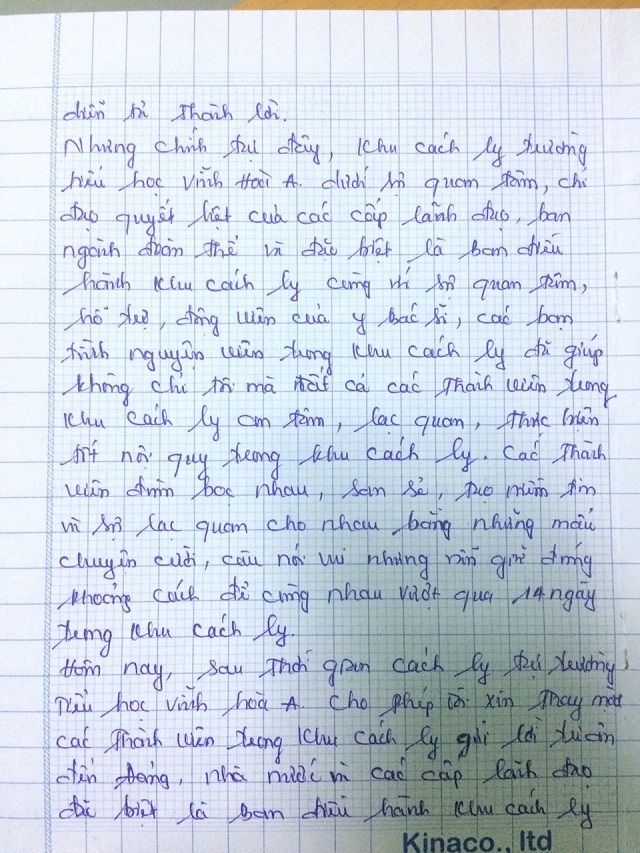 diễn tả thành lời.
Nhưng chính tại đây, khu cách ly trường
tiểu học Vĩnh Hoà A. dưới sự quan tâm, chỉ
đạo quyết liệt của các cấp lãnh đạo, ban
ngành đoàn thể và đặc biệt là ban điều
hành khu cách ly cùng với sự quan tâm,
hỗ trợ, động viên của y bác sĩ, các bạn
tình nguyện viên trong khu cách ly đã giúp
không chỉ tôi mà tất cả các thành viên trong
khu cách ly an tâm, lạc quan, thực hiện
tốt nội quy trong khu cách ly. Các thành
viên đùm bọc nhau, san sẻ, tạo niềm tin
và sự lạc quan cho nhau bằng những mẫu
chuyện cười, câu nói vui nhưng vẫn giữ đúng
khoảng cách để cùng nhau vượt qua 14 ngày
trong khu cách ly.
Hôm nay, sau thời gian cách ly tại trường
Tiểu học Vĩnh hoà A. cho phép tôi xin thay mặt
các thành viên trong khu cách ly gửi lời tri ân
đến Đảng, nhà nước và các cấp lãnh đạo
đặc biệt là ban điều hành khu cách ly
Kinaco., ltd